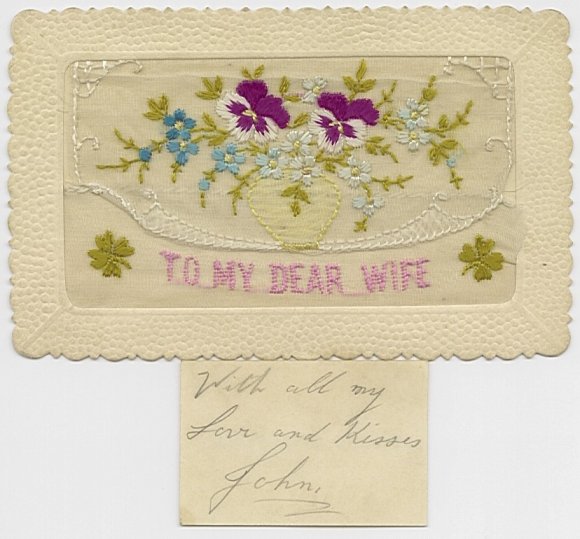 TO MY DEAR WIFE
With all my
Love and Kisses
John,